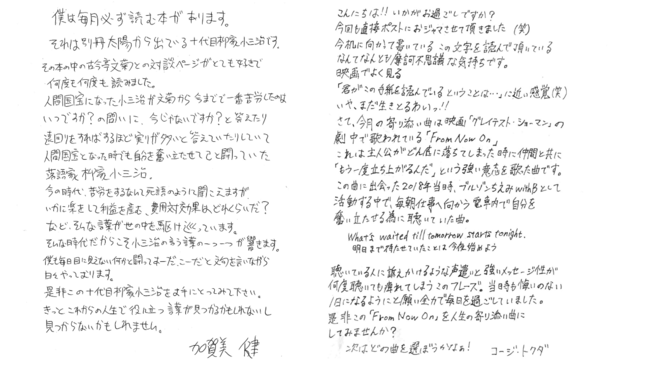 僕は毎月必ず読む本があります。
それは別冊太陽から出ている十代目柳家小三治です。
その本の中の古今亭文菊との対談ページがとても好きで
何度も何度も読みました。
人間国宝になった小三治が文菊から今までで一番苦労したのは
いつですか？の問いに、今じゃないですか？と答えたり
遠回りをすればするほど実りが多いと答えていたりしていて
人間国宝となった時でも自分を奮い立たせて己と闘っていた
落語家柳家小三治。
今の時代、苦労をするなんて死語のように聞こえますが
いかに楽をして利益を産む、費用対効果はどれくらいだ？
など、そんな言葉が世の中を駆け巡っています。
そんな時代だからこそ小三治の言う言葉の一つ一つが響きます。
僕は毎日目に見えない何かと闘ってあーだ、こーだと文句を言いながら
日々やっております。
是非この十代目柳家小三治をお手にとってみて下さい。
きっとこれからの人生で役に立つ言葉が見つかるかもしれないし
見つからないかもしれません。
加賀美 健
こんにちは!! いかがお過ごしですか？
今回も直接ポストにおジャマさせて頂きました（笑）
今机に向かって書いているこの文字を読んで頂いている
なんてなんとも摩訶不思議な気持ちです。
映画でよく見る
「君がこの手紙を読んでいるということは…」に近い感覚（笑）
いや、まだ生きとるわいっ!!
さて、今月の寄り添い曲は映画「グレイテスト・ショーマン」の
劇中で歌われている「From Now On」
これは主人公がどん底に落ちてしまった時に仲間と共に
「もう一度立ち上がるんだ」という強い意志を歌った曲です。
この曲に出会った2018年当時、ブルゾンちえみ with Bとして
活動する中で、毎朝仕事へ向かう電車内で自分を
奮い立たせる為に聴いていた曲。
What's waited till tomorrow starts tonight.
明日まで待たせていたことは今夜始めよう
聴いている人に訴えかけるような声遣いと強いメッセージ性が
何度聴いても痺れてしまうこのフレーズ。当時も悔いのない
1日になるようにと願い全力で毎日を過ごしていました。
是非この「From Now On」を人生の寄り添い曲に
してみませんか？
次はどの曲を選ぼうかなぁ！
コージ・トクダ